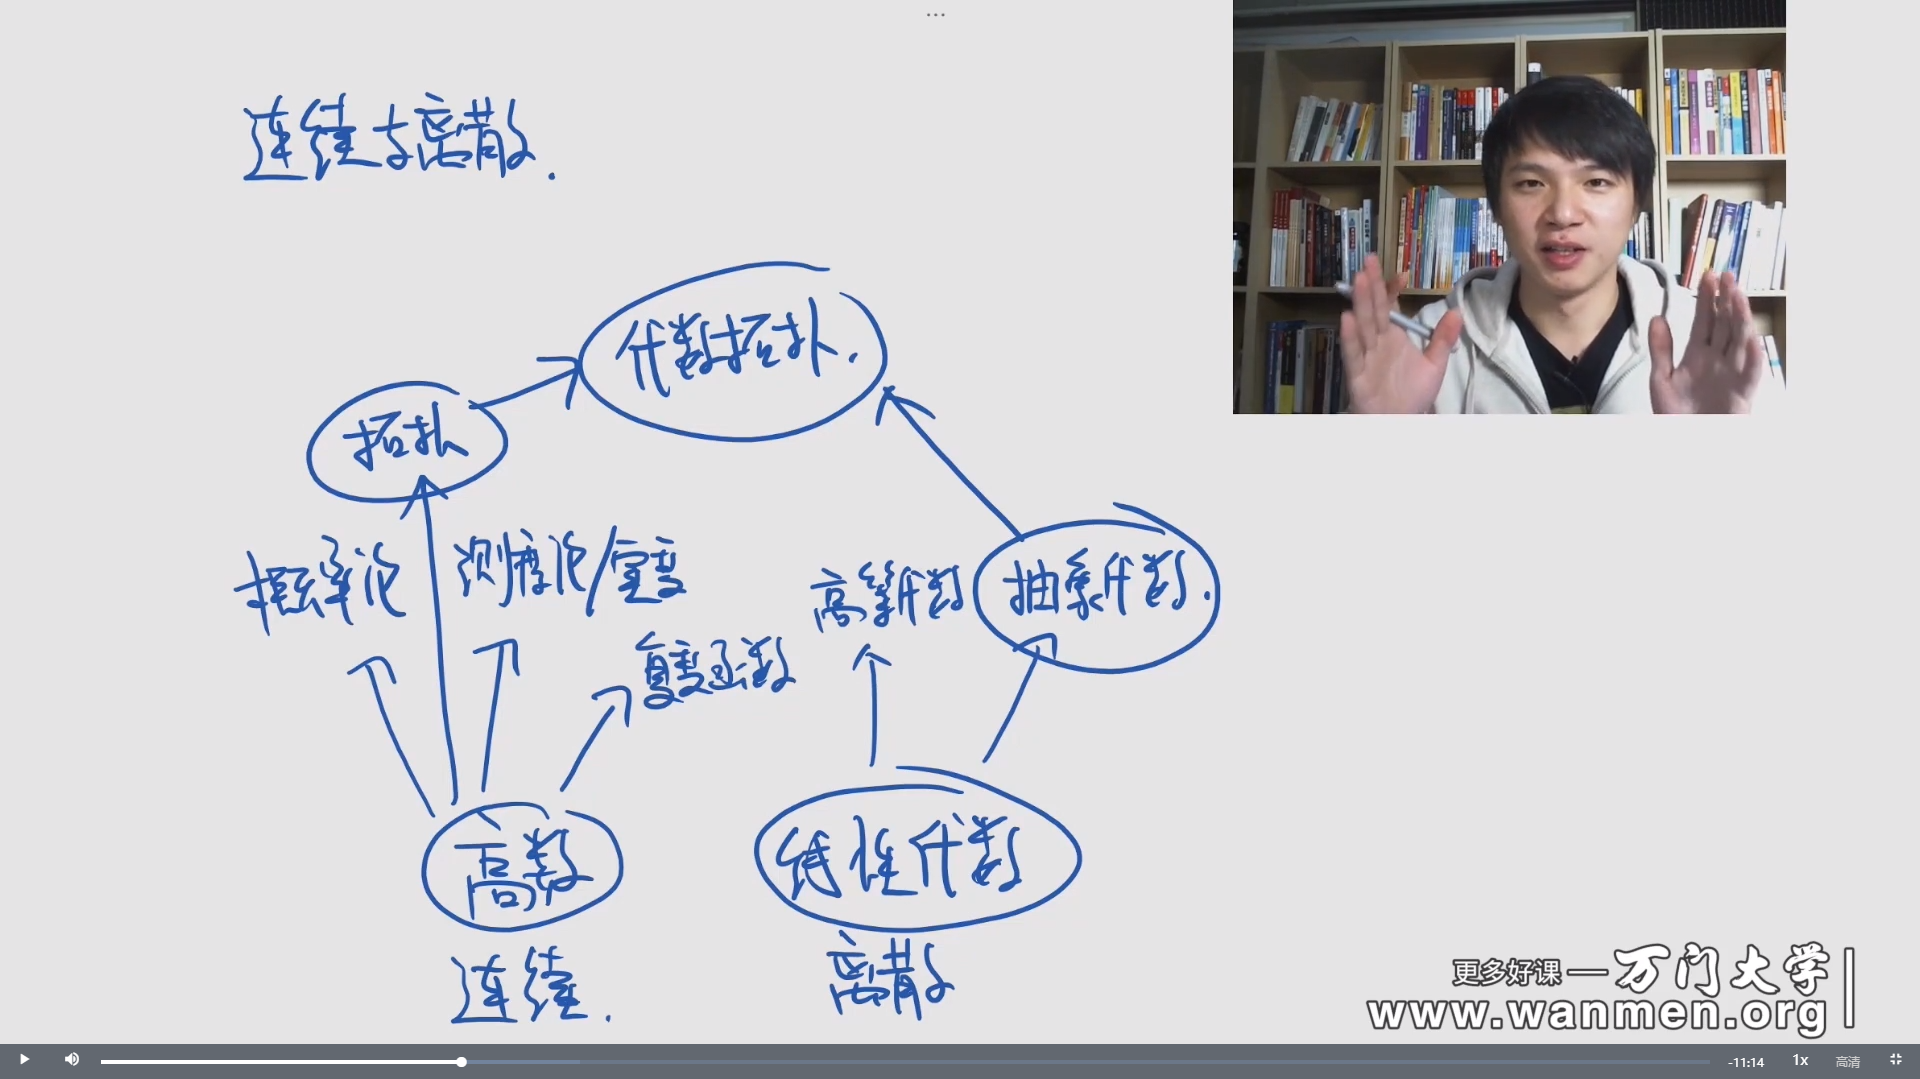 连续与离散.
代数拓扑.
拓扑
概率论
测度论/实变
高等代数
抽象代数.
复变函数
高数
线性代数
连续.
离散
更多好课—万门大学
www.wanmen.org
-11:14
1x
高清